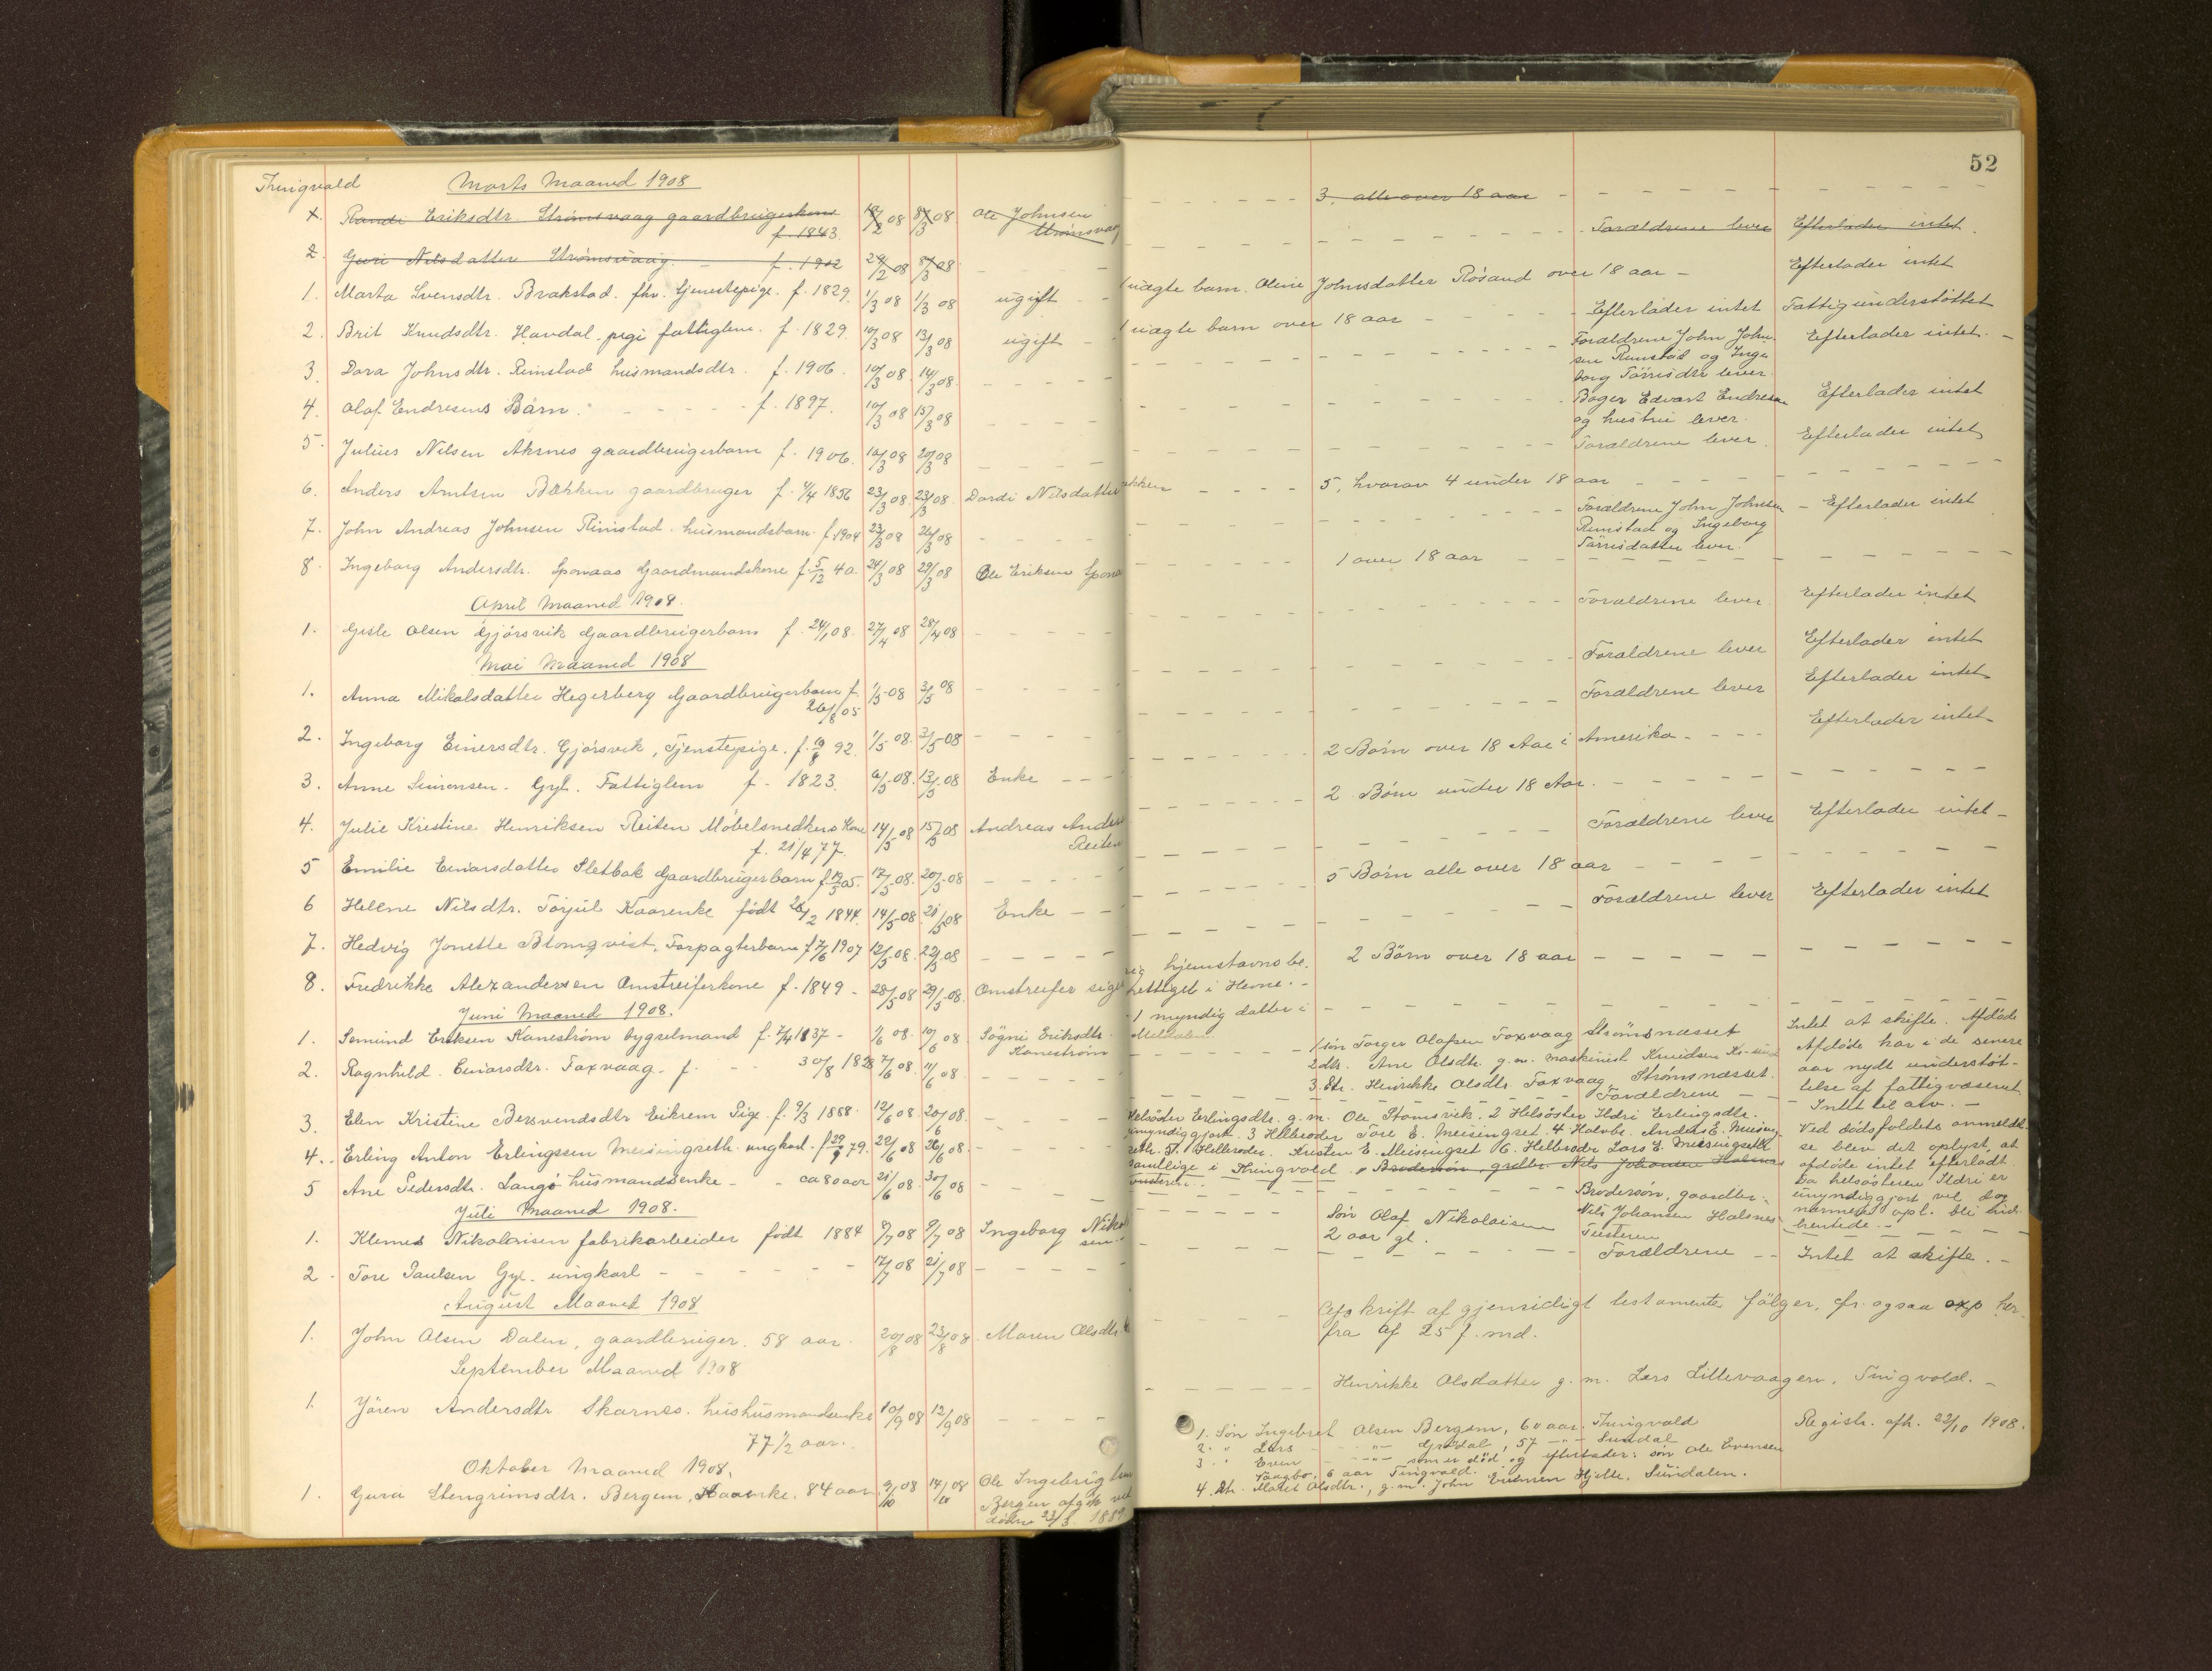 52
Thingvold Marts Maaned 1908
1. Randi Eriksdtr. Strømsvaag gaardbrugerkone 08 8/3 08 Ole Johnsen 3, alle over 18 aar
f. 1843. Strømsvaag
2. Guri Nilsdatter Strømsvaag. f. 1902 08 8/3 08 Forældrene lever Efterlader intet.
1. Marta Svensdtr. Brakstad. fhv. tjenestepige. f. 1829. 1/3 08 1/3 08 ugift 1 uægte barn. Oline Johnsdatter Rösand over 18 aar - Efterlader intet
2. Brit Knudsdtr. Havdal. pige fattiglem. f. 1829. 10/3 08 13/3 08 ugift 1 uægte barn over 18 aar Efterlader intet Fattigunderstøttet
3. Dora Johnsdtr. Rimstad husmandsdtr. f. 1906. 10/3 08. 14/3 08. Forældrene John John- Efterlader intet. -
sen Rimstad og Inge
borg Törrisdtr lever.
4. Olaf Endresens Barn. f. 1897. 10/3 08 15/3 08 Bager Edvart Endresen Efterlader intet
og hustru lever.
5. Julius Nilsen Aknes gaardbrugerbarn f. 1906. 10/3 08 20/3 08 Forældrene lever. Efterlader intet
6. Anders Arntsen Bækken gaardbruger f. 4/4 1856 23/3 08 23/3 08. Dordi Nilsdatter ækken 5, hvorav 4 under 18 aar
7. John Andreas Johnsen Rimstad husmandsbarn f. 1904 23/3 08 26/3 08 Forældrene John Johnsen - Efterlader intet
Rimstad og Ingeborg
Törrisdatter lever.
8. Ingeborg Andersdtr. Sponaas Gaardmandskone f. 5/12 40. 24/3 08 29/3 08 Ole Eriksen Spona 1 over 18 aar
April Maaned 1908.
1. Gisle Olsen Gjörsvik Gaardbrugerbarn f. 24/1 08. 27/4 08 28/4 08 Forældrene lever. Efterlader intet
Mai Maaned 1908
1. Anna Mikalsdatter Hegerberg Gaardbrugerbarn f. 1/5-08 3/5 08 Forældrene lever Efterlader intet
26/8 05
2. Ingeborg Einersdtr. Gjörsvik, Tjenestepige. f. 92. 1/5 08. 3/5-08 Forældrene lever Efterlader intet
3. Anne Simonsen. Gyl. Fattiglem f. 1823. 6/5-08. 13/5-08 Enke 2 Börn over 18 Aar i Amerika Efterlader intet
4. Julie Kristine Henriksen Reiten Möbelsnedkers Kone 14/5-08 15/5 08 Andreas Anders 2 Börn under 18 Aar.
f. 21/4 77. Reiten
5 Emilie Einarsdatter Sletbak Gaardbrugerbarn f. 19/5 05. 17/5-08. 20/5-08 Forældrene lever Efterlader intet -
6 Helene Nilsdtr. Torjul Kaarenke født 28/2 1844. 14/5-08. 21/5 08 Enke 5 Börn alle over 18 aar
7. Hedvig Jonette Blomqvist. Forpagterbarn f 7/6 1907 12/5-08. 22/5-08 Forældrene lever Efterlader intet
8. Fredrikke Alexandersen Omstreiferkone f. 1849 - 28/5-08 29/5-08. Omstreifer siges hjemstavnsbe- 2 Börn over 18 aar
rettiget i Hevne. -
Juni Maaned 1908.
1. Semund Eriksen Kanestrøm bygselmand f. 7/4 1837 - 1/6 08. 10/6 08 Sögni Eriksdtr. 1 myndig datter i
Kanestrøm Meldalen.
2. Ragnhild. Einarsdtr. Foxvaag. f. 30/8 1828 7/6 08. 11/6 08. 1 søn Torger Olafsen Foxvaag Strømsnæsset Intet at skifte. Afdöde
2 dtr. Ane Olsdtr. g.m. Maskinist Knudsen Kr-sund Afdöde har i de senere
3. Dtr. Henrikke Olsdtr. Foxvaag, Strømsnæsset. aar nydt understöt-
telse af fattigvæsenet
3. Elen Kristine Bersvendsdtr Eikrem Pige. f. 9/3 1888. 12/6 08. 20/6 08. Forældrene - Intet til arv. -
4. Erling Anton Erlingssen Meisingseth. ungkarl. f 29/9 79. 22/6 08 26/6 08. Helsöster Erlingsdtr. g.m. Ole Stomsvik. 2 Helsöster Ildri Erlingsdtr. Ved dödsfaldets anmeldt-
umyndiggjort. 3 Helbroder Tore E. Meisingset. 4 Halvbr. Anders E. Meising se blev det oplyst at
seth. 5. Helbroder Kristen E. Meisingset 6. Helbroder Lars E. Meisingseth afdöde intet efterlodt.
samtlige i Thingvold. Brodersön, grdbr. Nils Johansen Halsnes Da helsösteren Ildri er
5 Ane Pedersdtr. Langö husmandsenke ca 80 aar 21/6 08. 30/6 08 Brodersön, gaardbr. umyndiggjort vil dog
Nils Johansen Halsnes nærmere opl. bli ind-
Tusteren hentede. -
Juli Maaned 1908.
1. Klemet Nikolaisen fabrikarbeider født 1884 9/7 08 9/7 08 Ingeborg Nikol Sön Olaf Nikolaisen
sen. 2 aar gl.
2. Tore Paulsen Gyl. ungkarl 17/7 08 21/7 08 Forældrene Intet at skifte. -
August Maaned 1908
1. John Olsen Dalen, gaardbruger. 58 aar. 20/8 08 23/8 08. Maren Olsdtr. Afskrift af gjensidigt testamente følger, cfr. ogsaa exp. her-
fra af 25 f. md.
September Maaned 1908
1. Jören Andersdtr Skarnes. hushusmandsenke 10/9 08 12/9 08 Henrikke Olsdatter g.m. Lars Lillevaagen, Tingvold. -
77 1/2 aar.
Oktober Maaned 1908.
1. Gura Stengrimsdtr. Bergem, Kaarenke. 84 aar 9/10 08 14/10 08 Ole Ingebrigtsen 1. Sön Ingebret Olsen Bergem, 60 aar. Thingvold Registr. afh. 22/10 1908.
Bergem afgik ved 2. " Lars -"- Grødal, 57 -"- Sundal
døden 1889 3. " Even -"- som er död og efterlader: sön Ole Evensen
Vaagbø, 6 aar Tingvold.
4. Dtr. Marit Olsdtr., g.m. John Evensen Hjelle, Sundalen.